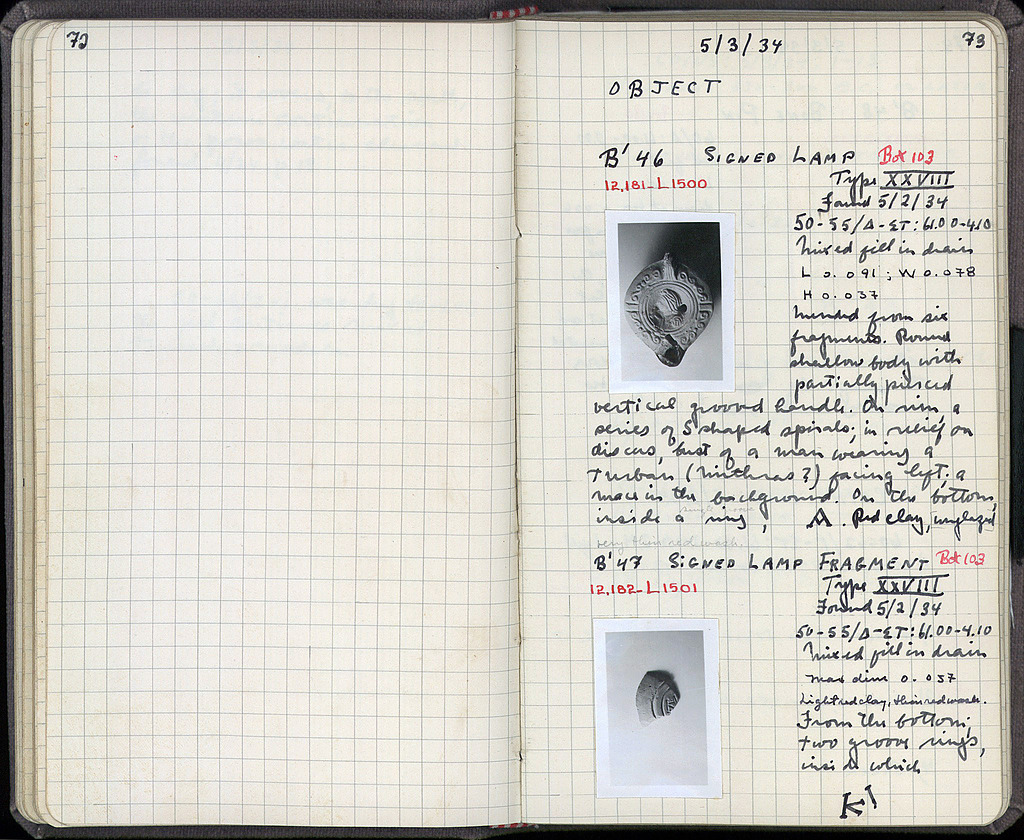 72
73
5/3/34
OBJECT
B' 46 SIGNED LAMP Box 103
12,181-L1500
Type XXVIII
Found 5/2/34
50-55/Δ-ΣT: 61.00-4.10
Mixed fill in drain
L 0.091; W 0.078
H 0.037
Mended from six
fragments. Round
shallow body with
partially pierced
vertical grooved handle. On rim, a
series of S shaped spirals; in relief on
discus, bust of a man wearing a
turban (Mithras?) facing left; a
mace in the background. On the bottom,
single groove
inside a ring, A. Red clay, unglazed
very thin red wash.
B' 47 SIGNED LAMP FRAGMENT Box 103
12,182-L1501
Type XXVIII
Found 5/2/34
50-55/Δ-ΣT: 61.00-4.10
Mixed fill in drain
max dim 0.057
Light red clay, thin red wash.
From the bottom;
two groove rings,
inside which
K'